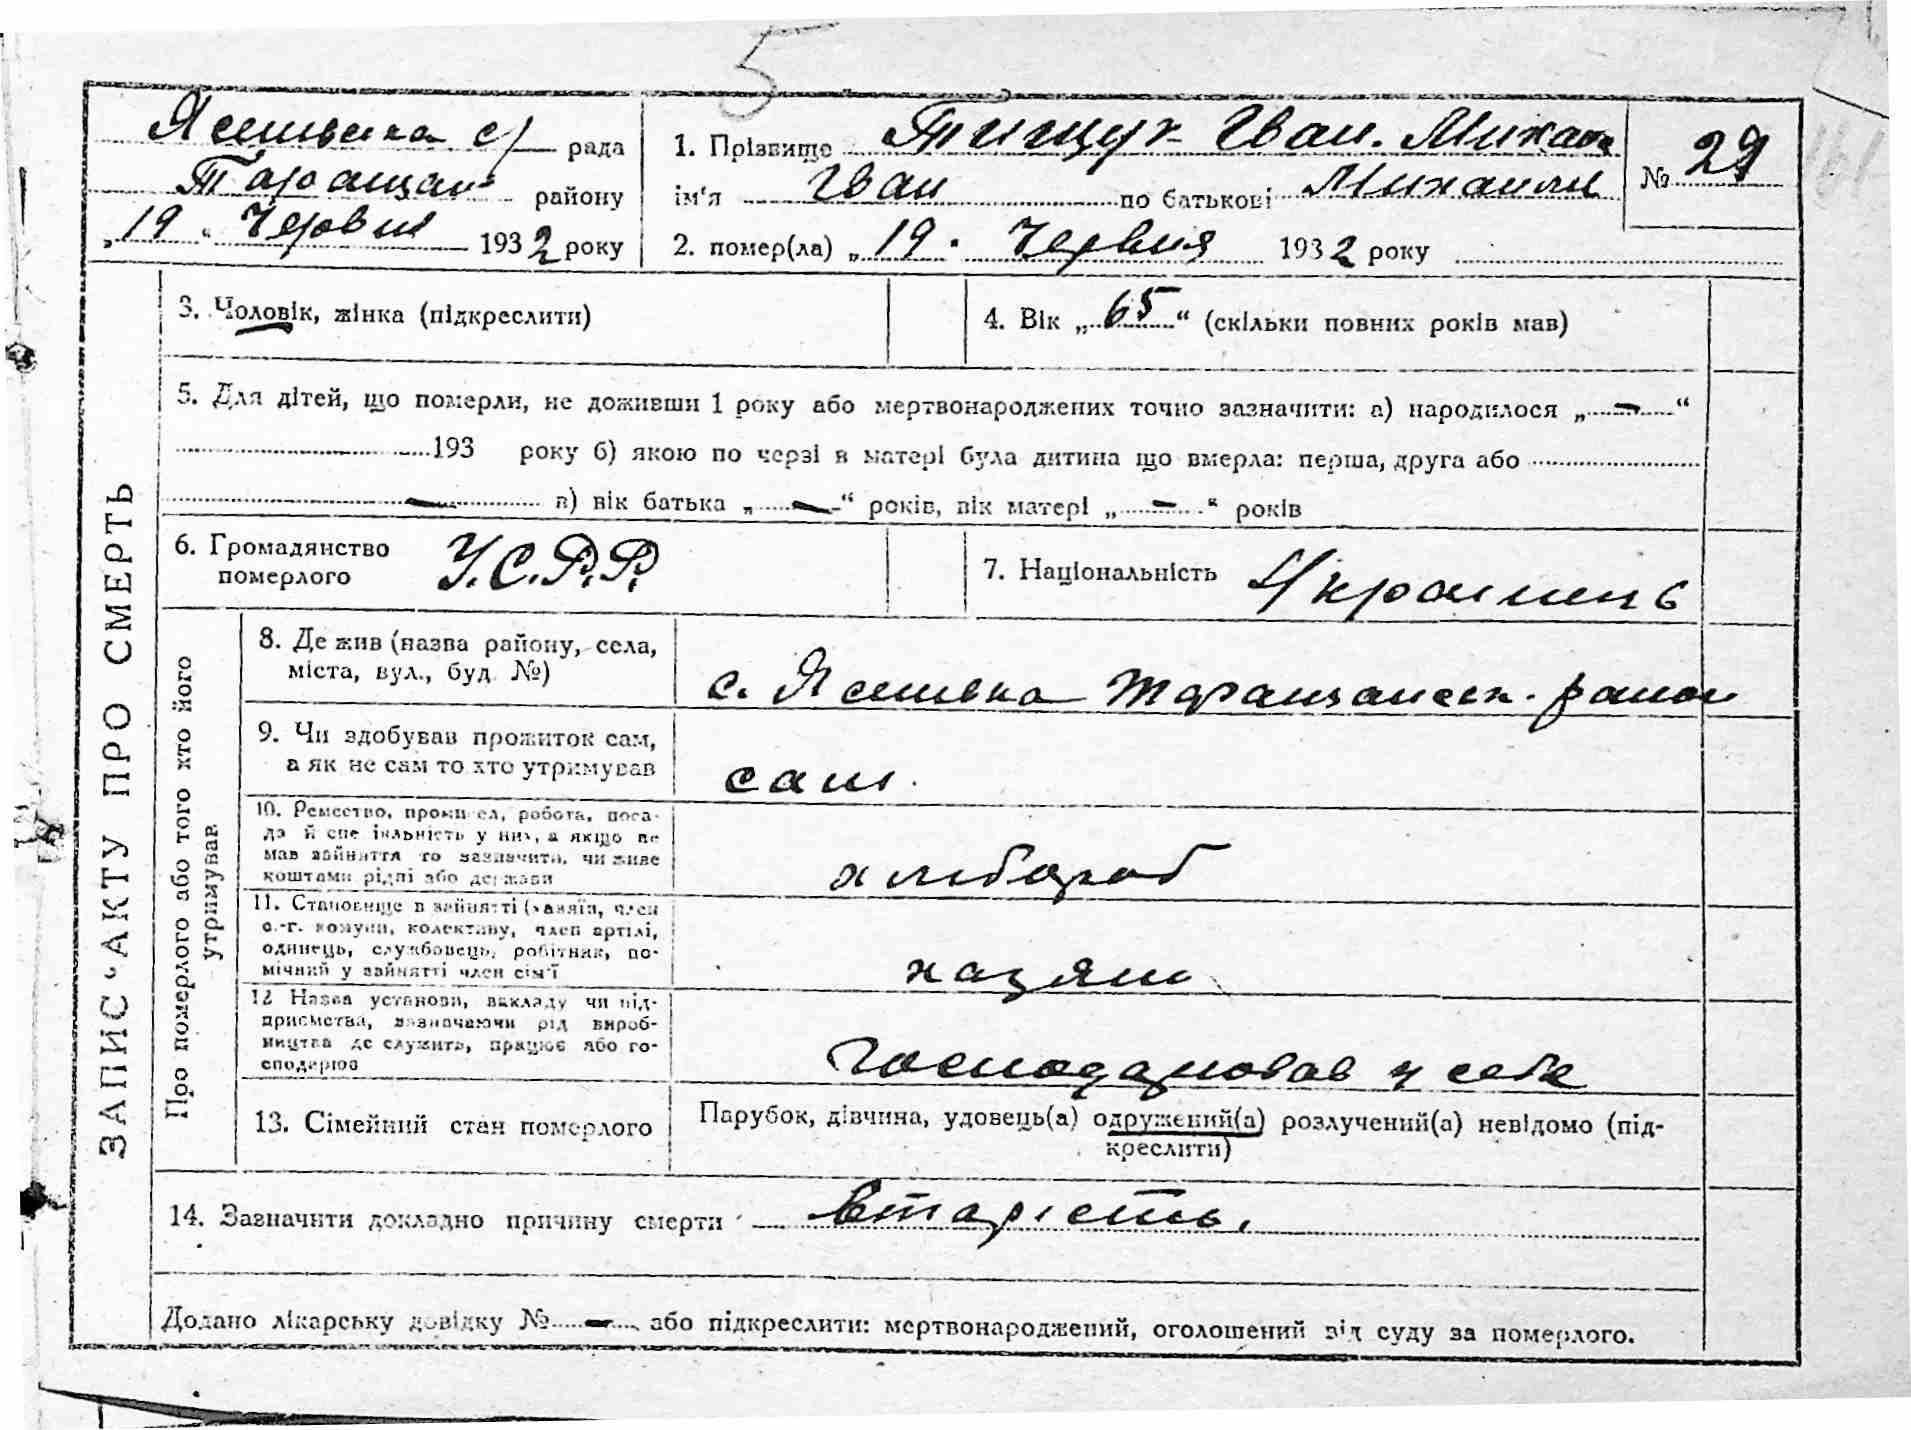 5
Ясинівска с/ рада
Таращан району
„19 “ Червня 1932 року
1. Прізвище Тищук Іван. Михайл
ім'я Іван по батькові Михайли
№ 29
2. помер(ла) „19 . Червня 1932 року
3. Чоловік, жінка (підкреслити)
4. Вік „65“ (скільки повних років мав)
5. Для дітей, що померли, не доживши 1 року або мертвонароджених точно зазначити: а) народилося „ — “
193 року б) якою по черзі в матері була дитина що вмерла: перша, друга або
— в) вік батька „ — “ років, вік матері „ — “ років
6. Громадянство
померлого У.С.Р.Р.
7. Національність Українець
ЗАПИС АКТУ ПРО СМЕРТЬ
Про померлого або того хто його
утримував
8. Де жив (назва району, села,
міста, вул., буд. №)
с. Ясинівка Таращанськ. район
9. Чи здобував прожиток сам,
а як не сам то хто утримував
сам.
10. Ремество, промисел, робота, поса-
да й спеціяльність у них, а якщо не
мав зайняття то зазначити, чи живе
коштами рідні або держави
хлібороб
11. Становище в зайнятті (хазяїн, член
с.-г. комуни, колективу, член артілі,
одинець, службовець, робітник, по-
мічний у зайнятті член сім'ї
хазяїн
12 Назва установи, закладу чи під-
приємства, зазначаючи рід вироб-
ництва де служить, працює або го-
сподарює
Господарював у себе
13. Сімейний стан померлого
Парубок, дівчина, удовець(а) одружений(а) розлучений(а) невідомо (під-
креслити)
14. Зазначити докладно причину смерти Старість.
Додано лікарську довідку № — або підкреслити: мертвонароджений, оголошений від суду за померлого.